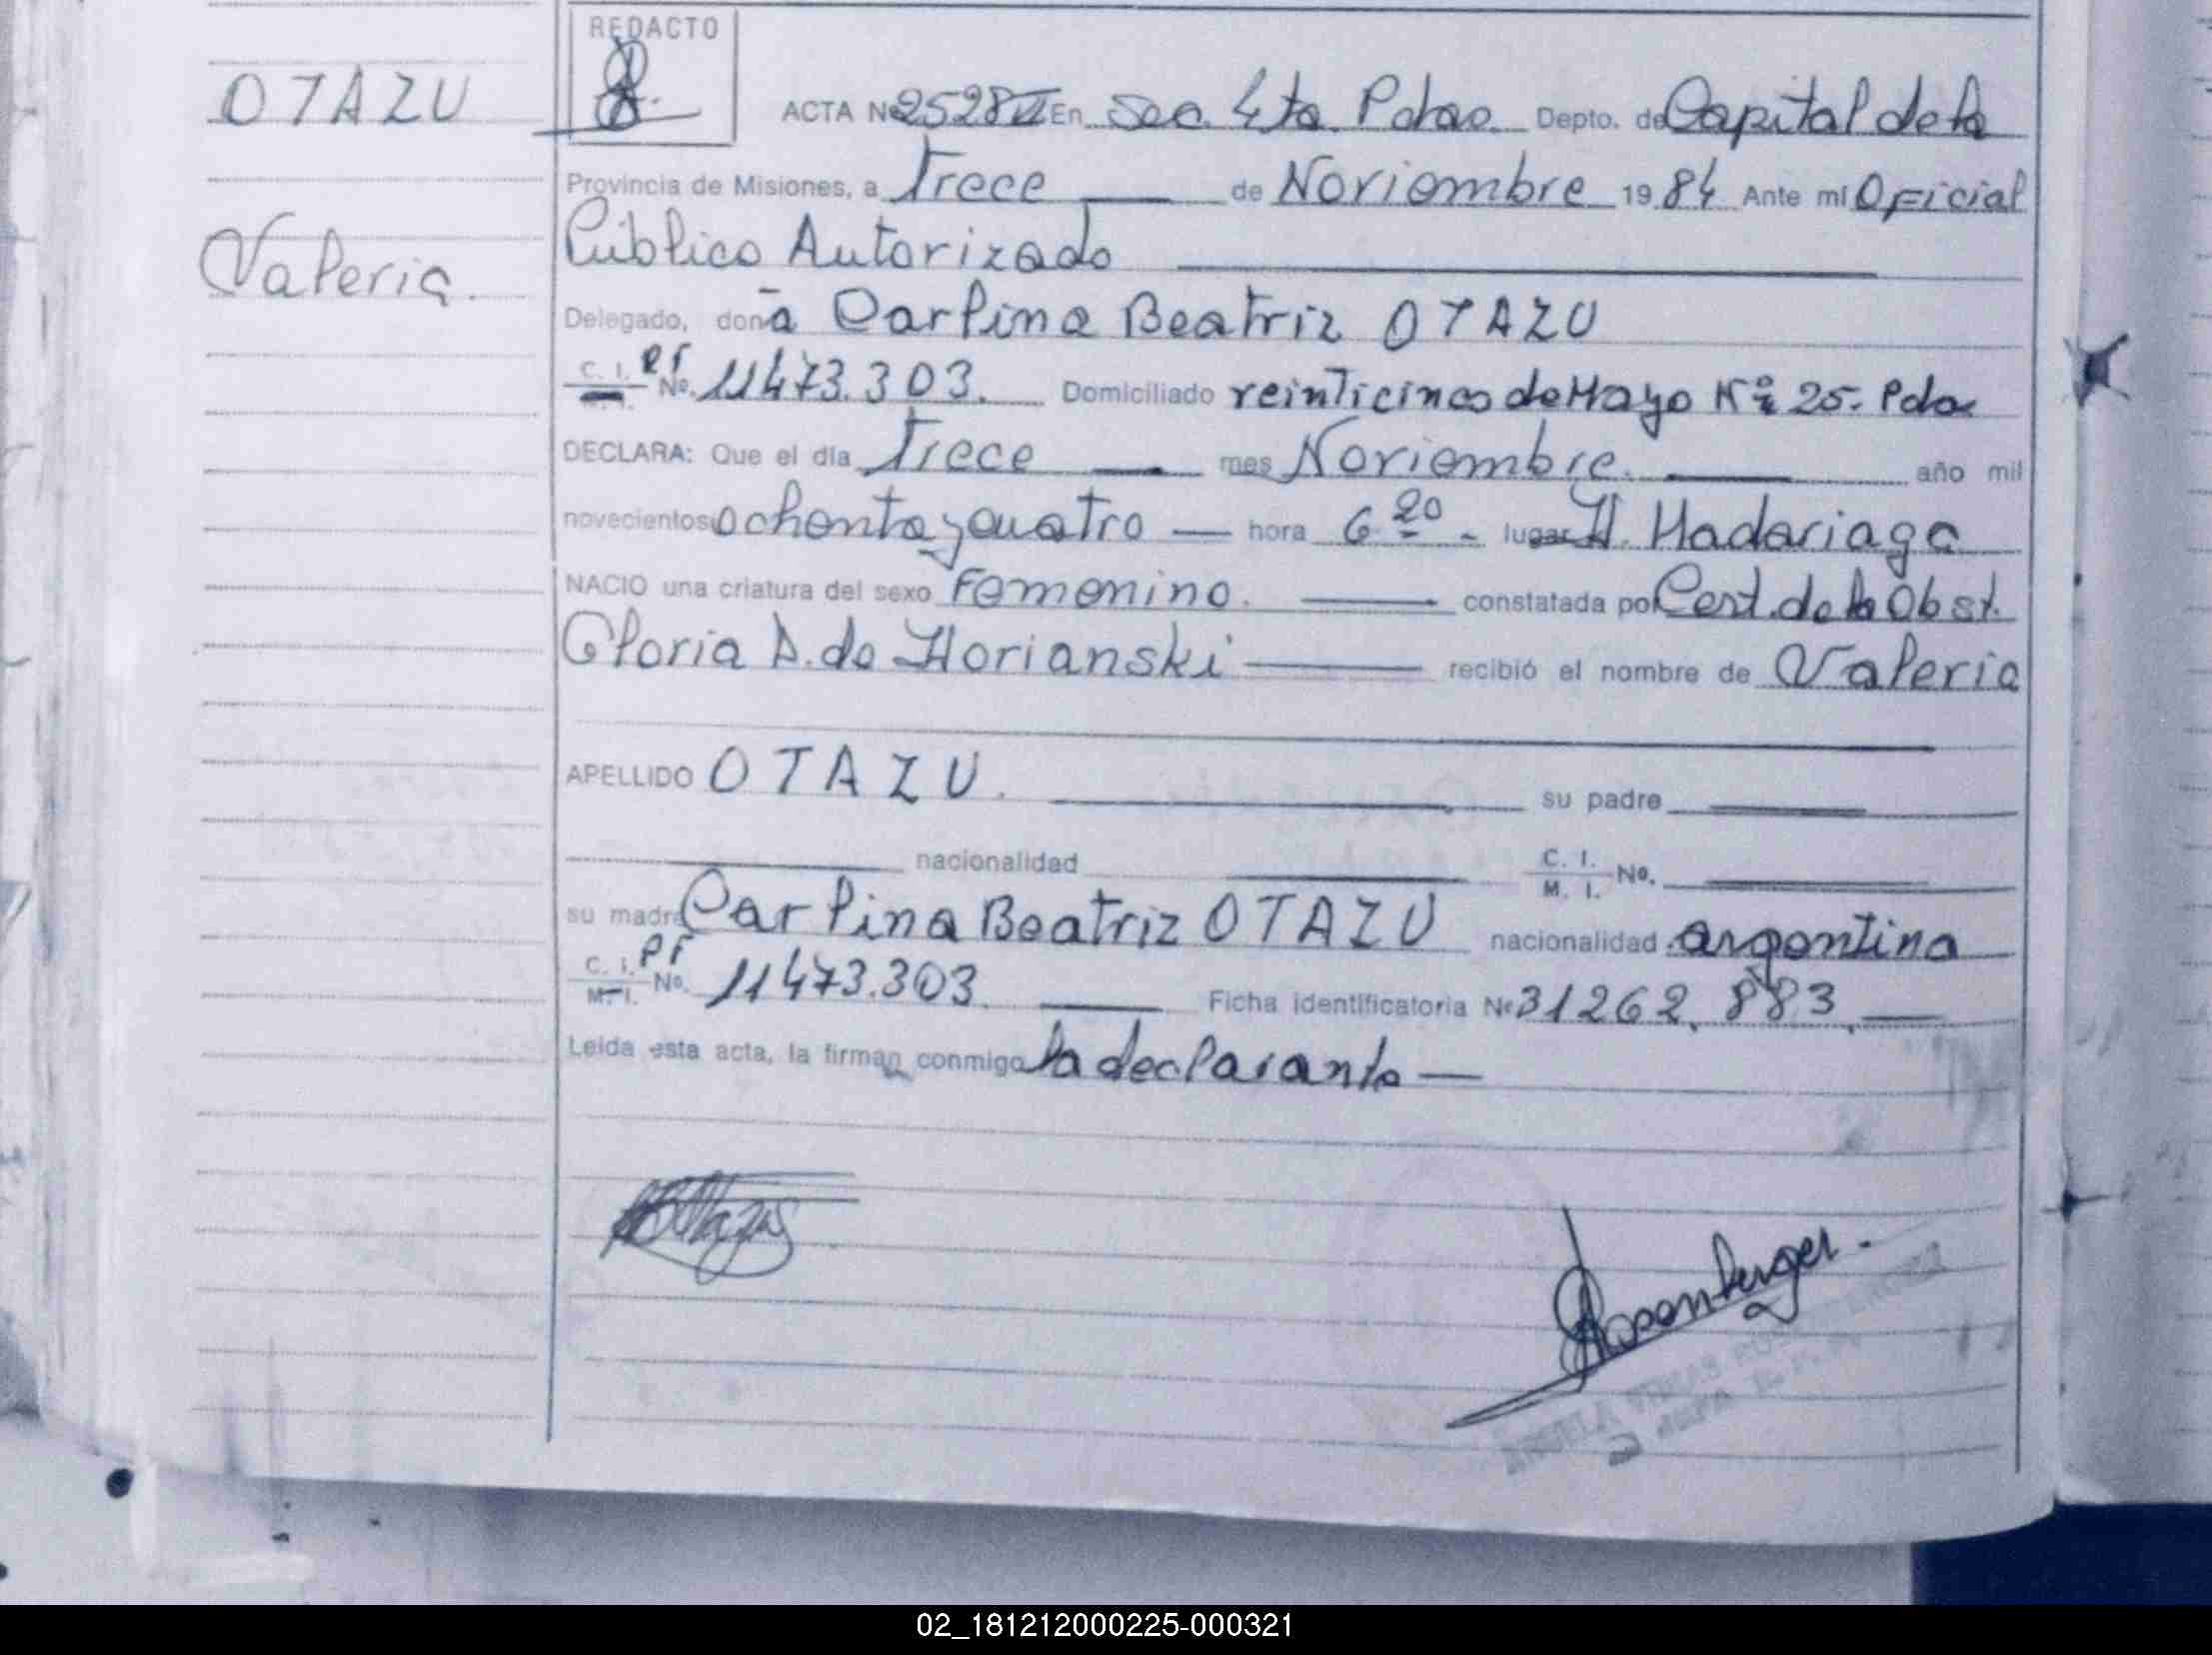 REDACTO
OTAZU
Valeria.
ACTA Nº 2528 VI En Sec. 4ta. Pdas. Depto. de Capital de la
Provincia de Misiones, a Trece de Noviembre 1984 Ante mí Oficial
Público Autorizado
Delegado, doña Carlina Beatriz OTAZU
C. I. M. I. No. 11473.303. Domiciliado veinticinco de Mayo Nº 25. Pdas
DECLARA: Que el día Trece mes Noviembre. año mil
novecientos ochenta y cuatro — hora 6 20 - lugar H. Madariaga
NACIO una criatura del sexo Femenino. constatada por Cert. de la Obst.
Gloria D. de Horianski recibió el nombre de Valeria
APELLIDO OTAZU. su padre
nacionalidad C. I. M. I. No.
su madre Carlina Beatriz OTAZU nacionalidad argentina
C. I. M. I. No. 11473.303. Ficha identificatoria Nº 31262.883.
Leída esta acta, la firman conmigo la declarante —
Rosenberger.
02_181212000225-000321